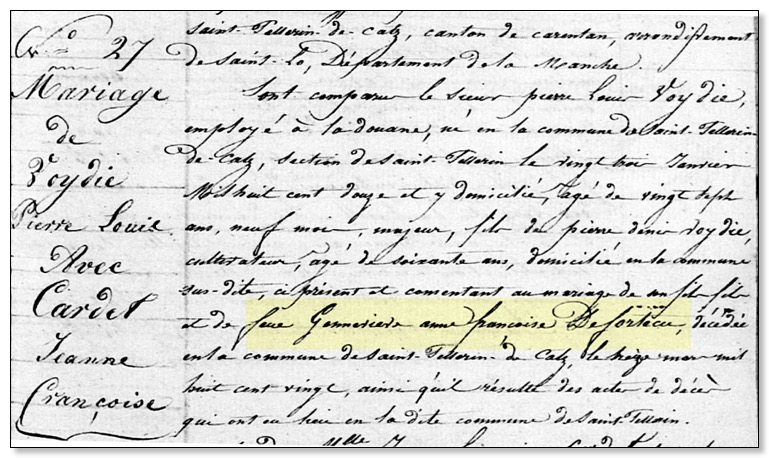 N.o 27
Mariage
de
Voydie
Pierre Louis
Avec
Cardet
Jeanne
Françoise
Saint-Pellerin-de-Catz, canton de carentan, arrondissement
de Saint-Lo, Département de la Manche.
Sont comparus le sieur pierre Louis Voydie,
employé à la douane, né en la commune de Saint-Pellerin
de-Catz, section de Saint-Pellerin le vingt trois Janvier
Mil huit cent douze et y domicilié, âgé de vingt sept
ans, neuf mois, majeur, fils de pierre denis Voydie,
cultivateur, âgé de soixante ans, domicilié en la commune
sus-dite, ci présent et consentant au mariage de son fils
et de feue Gennevieve anne françoise Desortecu, décédée
en la commune de Saint-Pellerin-de Catz, le seize mars mil
huit cent vingt, ainsi qu'il résulte des actes de décès
qui ont eu lieu en la dite commune de Saint-Pellerin.